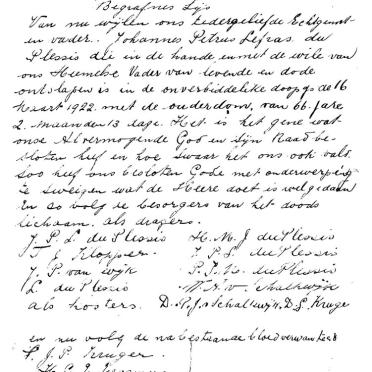 Begrafnis Lys
Van nu wijlen ons tedergeliefde Echtgenoot
en vader. Johannes Petrus Lefras du
Plessis die in de hande en met de wile van
ons Hemelse Vader van levende en dode
ontslapen is in de onverbiddelike dood op de 16
Maart 1922. met de ouderdom, van 66. jare
2. maanden 13 dage. Het is het gene wat
onse Alvermogende God en Sijn Raad be-
sloten heef en hoe swaar het ons ook valt
soo heef ons besloten Gode met onderwerping
te sweigen wat de Heere doet is welgedaan
En so volg de besorgers van het doods
lichaam. als dragers.
J. P. L. du Plessis H. M. J du Plessis
T J Klopper. J. P. L. du Plessis
J. P. van Wyk P. J. du Plessis
L. du Plessis Schalkwijk
als kosters. D. P. J. v Schalkwijk, D. S. Kruge
en nu volg de nabestaande bloedverwanten
J. P. Kruger.